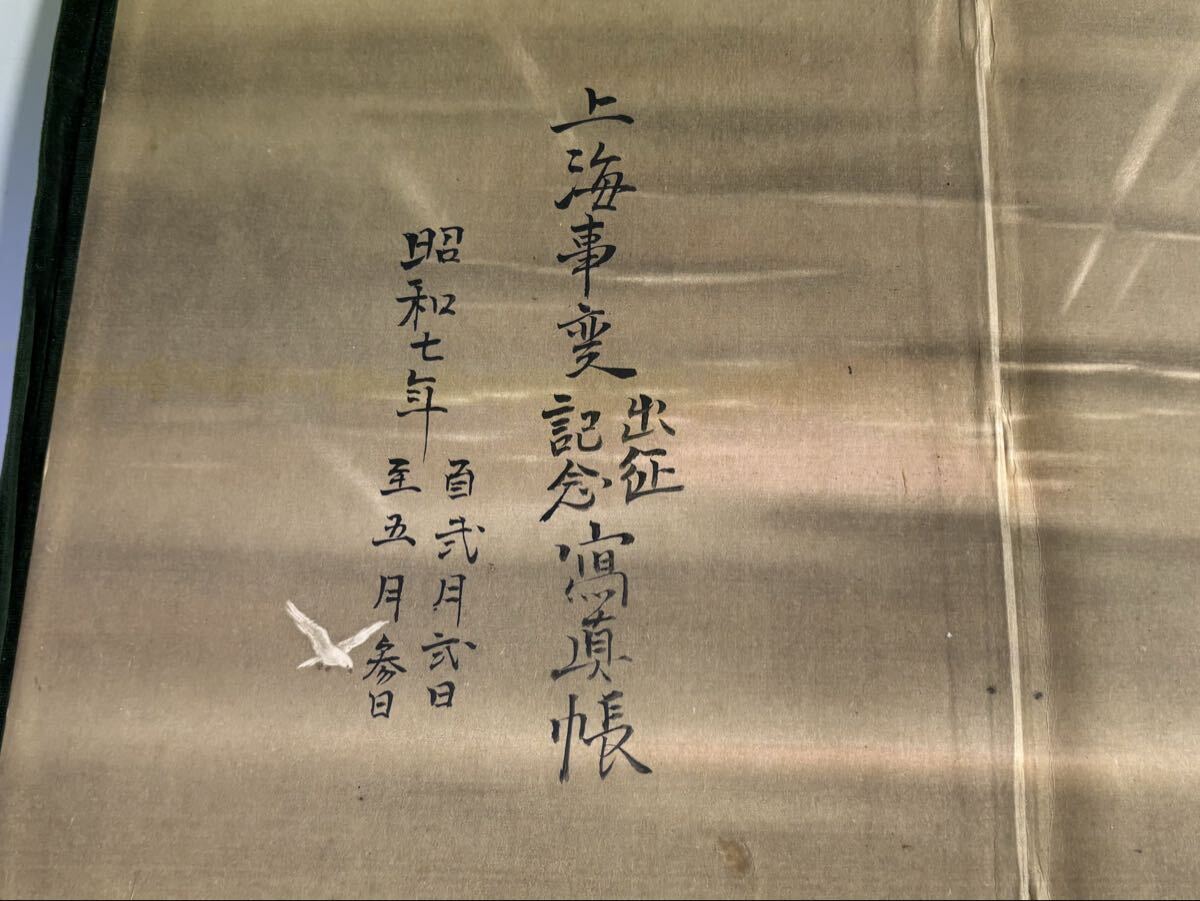 上海事変出征記念寫真帳
昭和七年
自弐月弐日
至五月参日